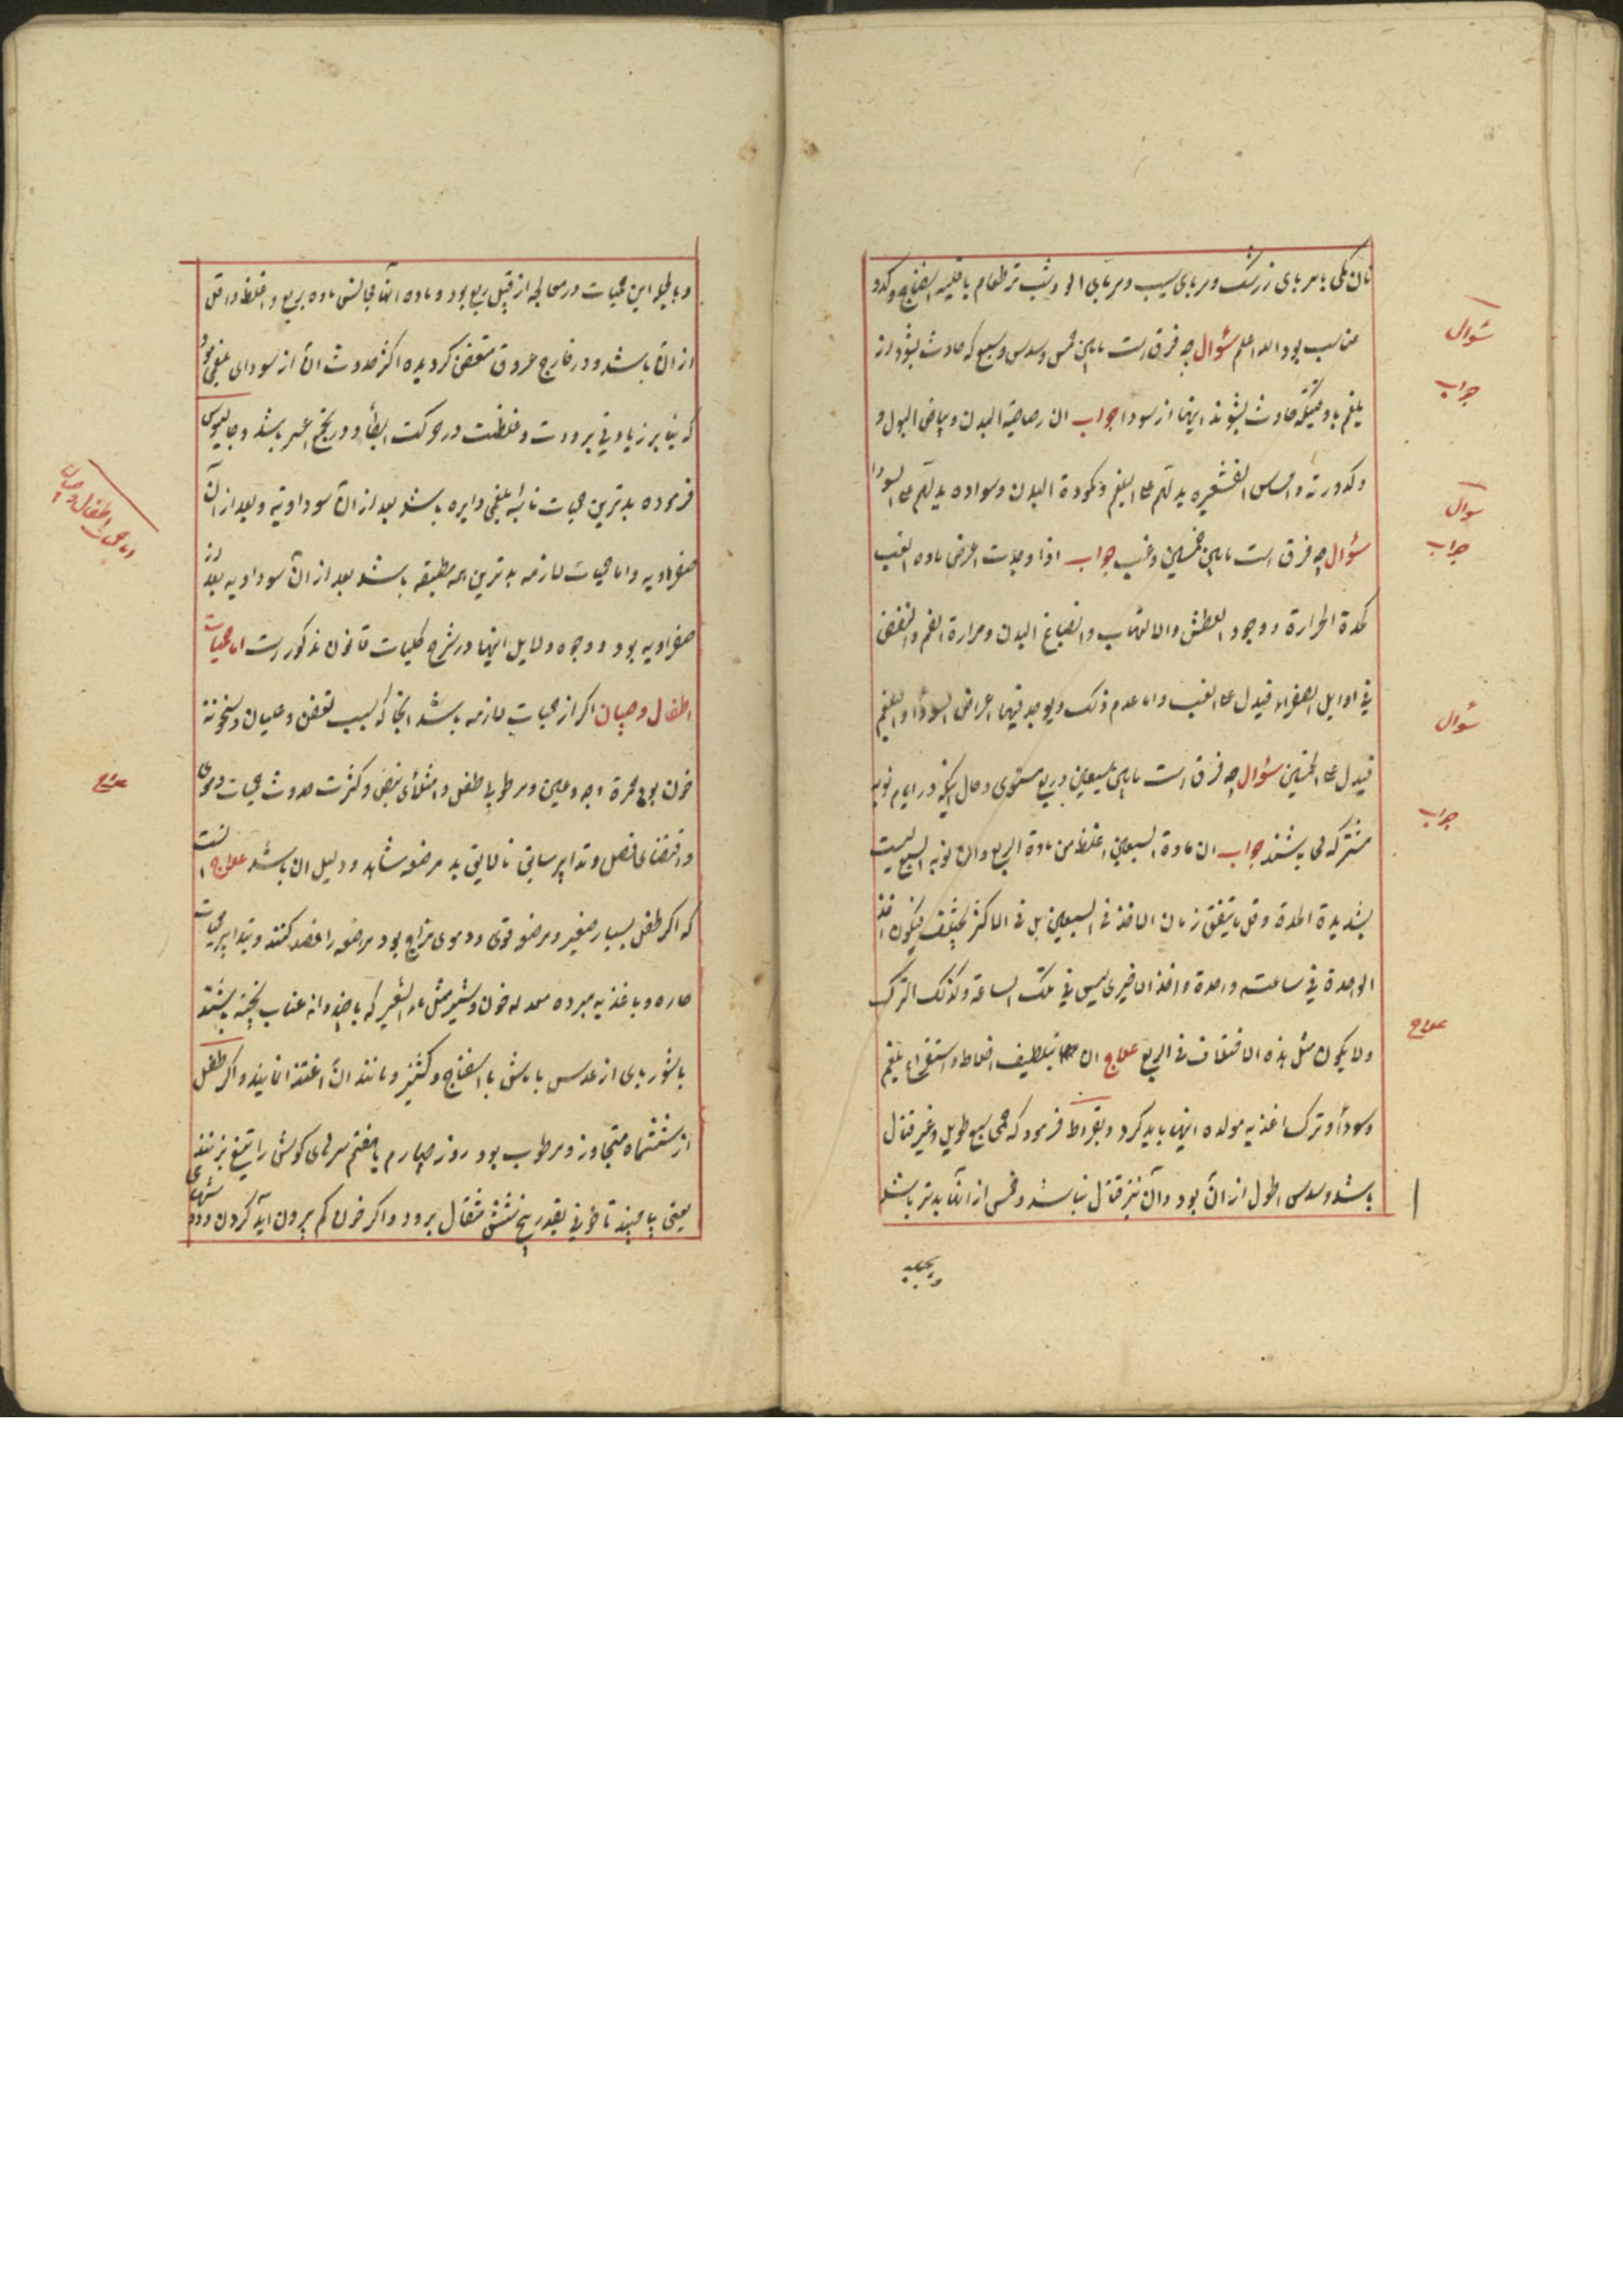 نان مکی با مربای زرشک و مربای سیب و مربای الو و شب تر طعام با قلیه اسفناج و کدو
مناسب بود الله اعلم سؤال چه فرق است مابین خمس و سدس و سبع که حادث بشود از
بلغم با وقتیکه حادث بشوند اینها از سودا جواب ان رصاصیة البدن و بیاض البول و
و کدورته و احساس القشعریره یدلهم علی البلغم و کمودة البدن و سواده یدلهم علی السودا
سؤال چه فرق است مابین خمسین و غب جواب اذا وجدت اعراض ماده الغب
کحدة الحرارة و وجود العطش والالتهاب وانصباغ البدن و مرارة الفم والنفض
فی اوایل الصفراء فیدل علی الغب واما عدم ذلک و یوجد فیها اعراض السودا والبلغم
فیدل علی الخمسین سؤال چه فرق است مابین سبعین و ربع مستوی و حال اینکه در ایام نوبه
مشترکه می باشند جواب ان مادة السبعین اغلظ من مادة الربع وان نوبة السبع لیست
بشدیدة المدة و قل ما یتفق زمان الاخذ فی السبعین بل فی الاکثر یختلف فیکون اخذ
الواحدة فی ساعة واحدة واخذ الاخری لیس فی تلک الساعة وکذلک الترک
ولا یکون مثل هذه الاختلاف فی الربع علاج ان بتلطیف اخلاط و استفراغ بلغم
وسودا و ترک اغذیه مولده اینها باید کرد و بقراط فرمود که حمی سبع طویل و غیر قتال
باشد و سدس اطول از ان بود و آن نیز قتال نباشد و خمس از آنها بدتر باشد
سؤال
جواب
سوال
جواب
سؤال
جواب
علاج
و بالجمله این حمیات در معالجه از قبیل ربع بود و ماده آنها مجالس ماده ربع و اغلظ و اقل
از ان باشد و در خارج عروق متعفن کردیده اکثر حدوث ان از سودای بلغمی بود
که بنابر زیادتی برودت و غلظت در حرکت ابطا و در نضج اعسر باشد و جالینوس
فرموده بدترین حمیات نائبه بلغمی دایره باشد بعد از ان سوداویة و بعد از آن
صفراویه و اما حمیات لازمه بدترین همه مطبقه باشد بعد از ان سوداویه بعد از
صفراویه بود و وجوه و دلایل اینها در شرح کلیات قانون مذکور است اما حمیات
اطفال و صبیان اکر از حمیات لازمه باشد انجا که بسبب تعفن و غلیان و سخونة
خون بود حمرة وجه و عین و مرطوبا طفل و امتلای نبض و کثرت حدوث حمیات دموی
و اقتضای فصل و تدابیر سابق نالایق بد مرضعه شاهد و دلیل ان باشد علاج انست
که اکر طفل بسیار صغیر و مرضعه قوی و دموی مزاج بود مرضعه را فصد کنند و بتدابیر حمیات
حاره و باغذیه مبرده معدله خون و شیر مثل ماء الشعیر که با چند دانه عناب پخته باشند
یا شوربای از عدس با ماش با اسفناج و کشنیز و مانند ان اغتذا نمایند و اکر طفل
از ششماه متجاوز و مرطوب بود روز چهارم یا هفتم سرهای کوشش را تیغ بزنند
یعنی بیاچند تا خونی بقدر پنج شش مثقال برود و اکر خون کم برون آید کردن و
اما حمیات اطفال و صبیان
علاج